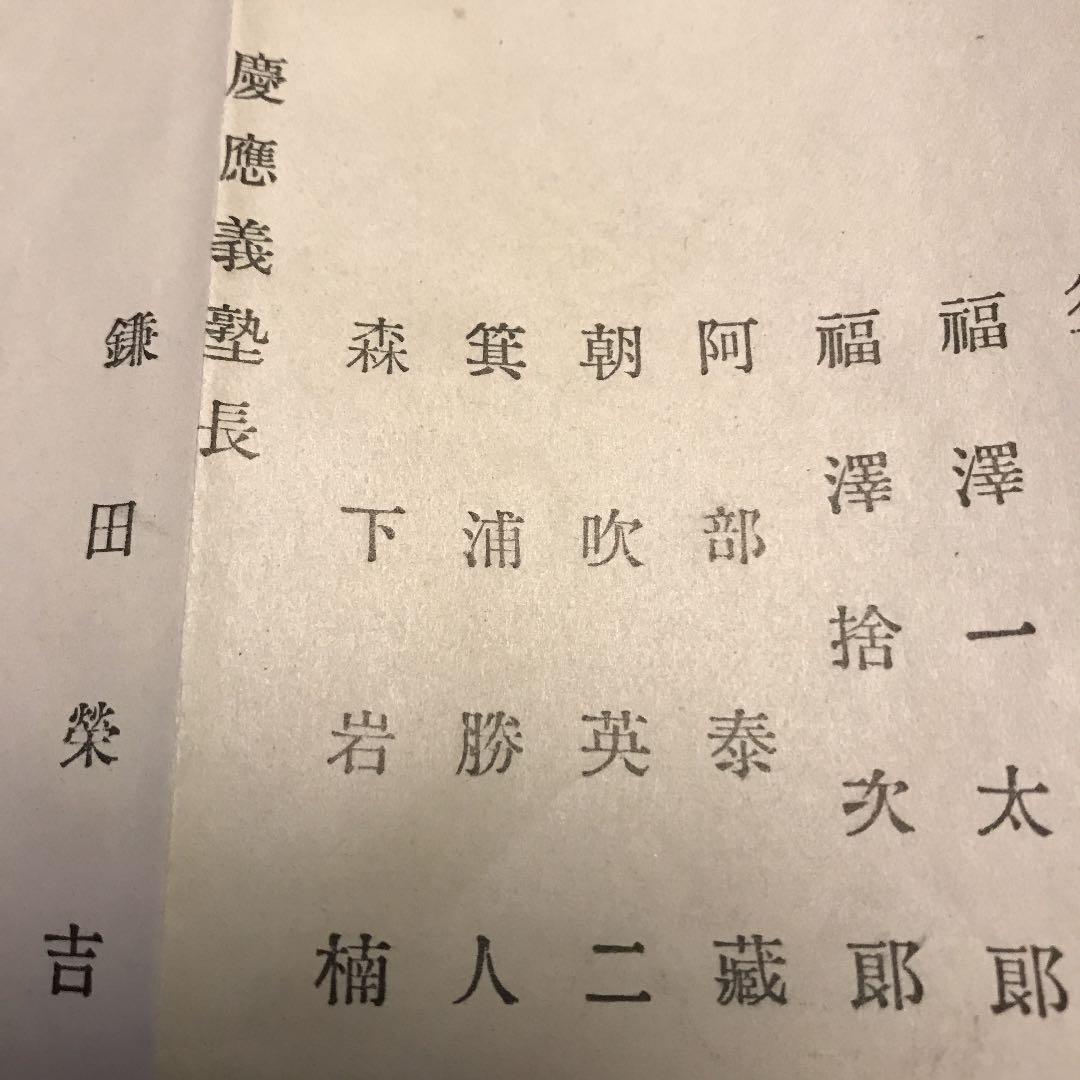 福澤一太郞
福澤捨次郞
阿部泰藏
朝吹英二
箕浦勝人
森下岩楠
慶應義塾長
鎌田榮吉